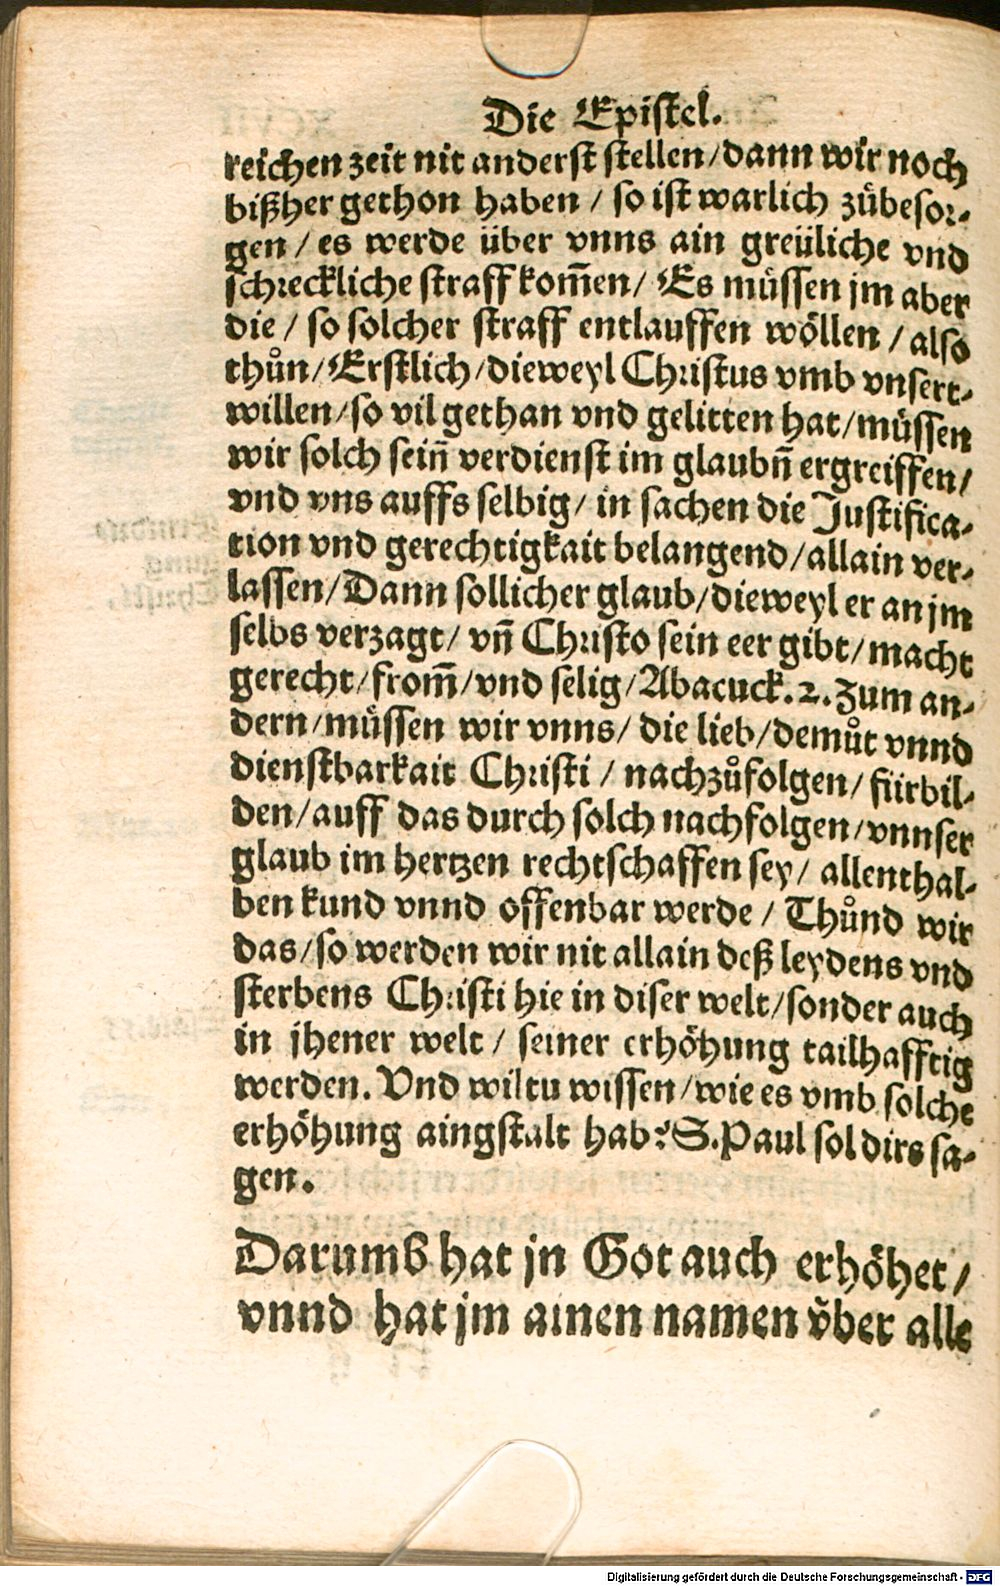 Die Epistel.
reichen zeit nit anderst stellen/dann wir noch
bißher gethon haben / so ist warlich zůbesor-
gen / es werde über vnns ain greüliche vnd
schreckliche straff kom̃en/ Es müssen jm aber
die / so solcher straff entlauffen wöllen / also
thůn/Erstlich/dieweyl Christus vmb vnsert-
willen/so vil gethan vnd gelitten hat/müssen
wir solch sein̄ verdienst im glaubn̄ ergreiffen/
vnd vns auffs selbig/ in sachen die Justifica-
tion vnd gerechtigkait belangend/allain ver-
lassen/Dann sollicher glaub/dieweyl er an jm
selbs verzagt/ vn̄ Christo sein eer gibt/macht
gerecht/from̃/vnd selig/Abacuck.2.Zum an-
dern/müssen wir vnns/ die lieb/demůt vnnd
dienstbarkait Christi / nachzůfolgen/ fürbil-
den/auff das durch solch nachfolgen/vnnser
glaub im hertzen rechtschaffen sey/ allenthal-
ben kund vnnd offenbar werde / Thůnd wir
das/so werden wir nit allain deß leydens vnd
sterbens Christi hie in diser welt/sonder auch
in jhener welt / seiner erhöhung tailhafftig
werden. Vnd wiltu wissen/wie es vmb solche
erhöhung aingstalt hab? S.Paul sol dirs sa-
gen.
Darumb hat jn Got auch erhöhet /
vnnd hat jm ainen namen v̈ber alle
Digitalisierung gefördert durch die Deutsche Forschungsgemeinschaft - DFG